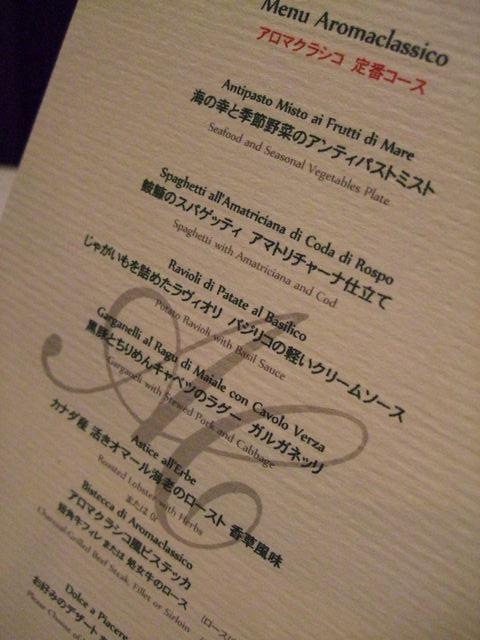 Menu Aromaclassico
アロマクラシコ 定番コース
Antipasto Misto ai Frutti di Mare
海の幸と季節野菜のアンティパストミスト
Seafood and Seasonal Vegetables Plate
Spaghetti all'Amatriciana di Coda di Rospo
鮟鱇のスパゲッティ アマトリチャーナ仕立て
Spaghetti with Amatriciana and Cod
Ravioli di Patate al Basilico
じゃがいもを詰めたラヴィオリ バジリコの軽いクリームソース
Potato Ravioli with Basil Sauce
Garganelli al Ragu di Maiale con Cavolo Verza
黒豚とちりめんキャベツのラグー ガルガネッリ
Garganelli with Stewed Pork and Cabbage
Astice all'Erbe
カナダ産 活きオマール海老のロースト 香草風味
Roasted Lobster with Herbs
または Or
Bistecca di Aromaclassico
アロマクラシコ風ビステッカ
短角牛フィレ または 処女牛のロース
Charcoal-Grilled Beef Steak, Fillet or Sirloin
Dolce a Piacere
お好みのデザート
Please Choose